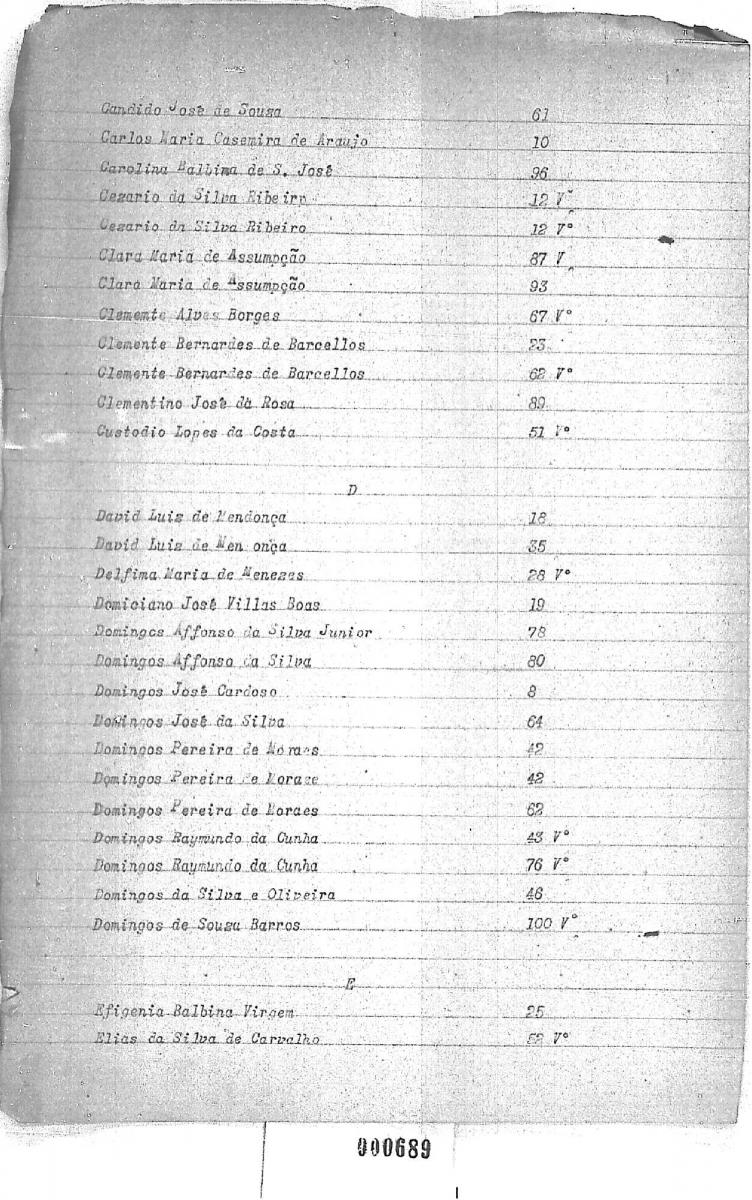 Candido José de Sousa 61
Carlos Maria Casemira de Araujo 10
Carolina Balbima de S. José 96
Cezario da Silva Ribeiro 12 Vº
Cezario da Silva Ribeiro 12 Vº
Clara Maria de Assumpção 87 V
Clara Maria de Assumpção 93
Clemente Alves Borges 67 Vº
Clemente Bernardes de Barcellos 23
Clemente Bernardes de Barcellos 62 Vº
Clementino José da Rosa 89
Custodio Lopes da Costa 51 Vº
D
David Luis de Mendonça 18
David Luis de Men onça 35
Delfima Maria de Menezes 28 Vº
Domiciano José Villas Boas 19
Domingos Affonso da Silva Junior 78
Domingos Affonso da Silva 80
Domingos José Cardoso 8
Domingos José da Silva 64
Domingos Pereira de Moraes 42
Domingos Pereira de Morase 42
Domingos Pereira de Moraes 62
Domingos Raymundo da Cunha 43 Vº
Domingos Raymundo da Cunha 76 Vº
Domingos da Silva e Oliveira 46
Domingos de Sousa Barros 100 Vº
E
Efigenia Balbina Virgem 25
Elias da Silva de Carvalho Vº
000689